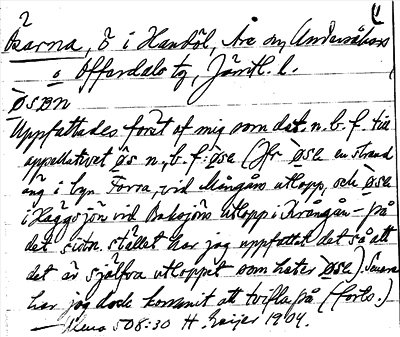 2 4
Åsarna, ö i Handöl, Åre sn, Undersåkers
o Offerdals tg, Jämtl. l.
Uppfattades först af mig som dat. n. b. f. till
appellativet ôs n., b. f. (Jfr en strand
äng i byn Forra, vid Mångåns utlopp, och
i Häggsjön vid Baksjöns utlopp i Krångån – på
det sistn. stället har jag uppfattat det så att
det är själfva utloppet som heter). Senare
har jag dock kommit att tvifla på (forts.)
508:30 H. Geijer 1904.